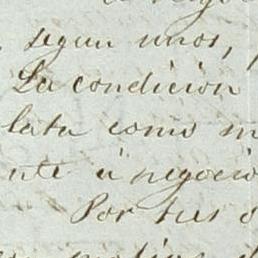 segun unos,
La condicion
lata como
nte á negocio
Por sus